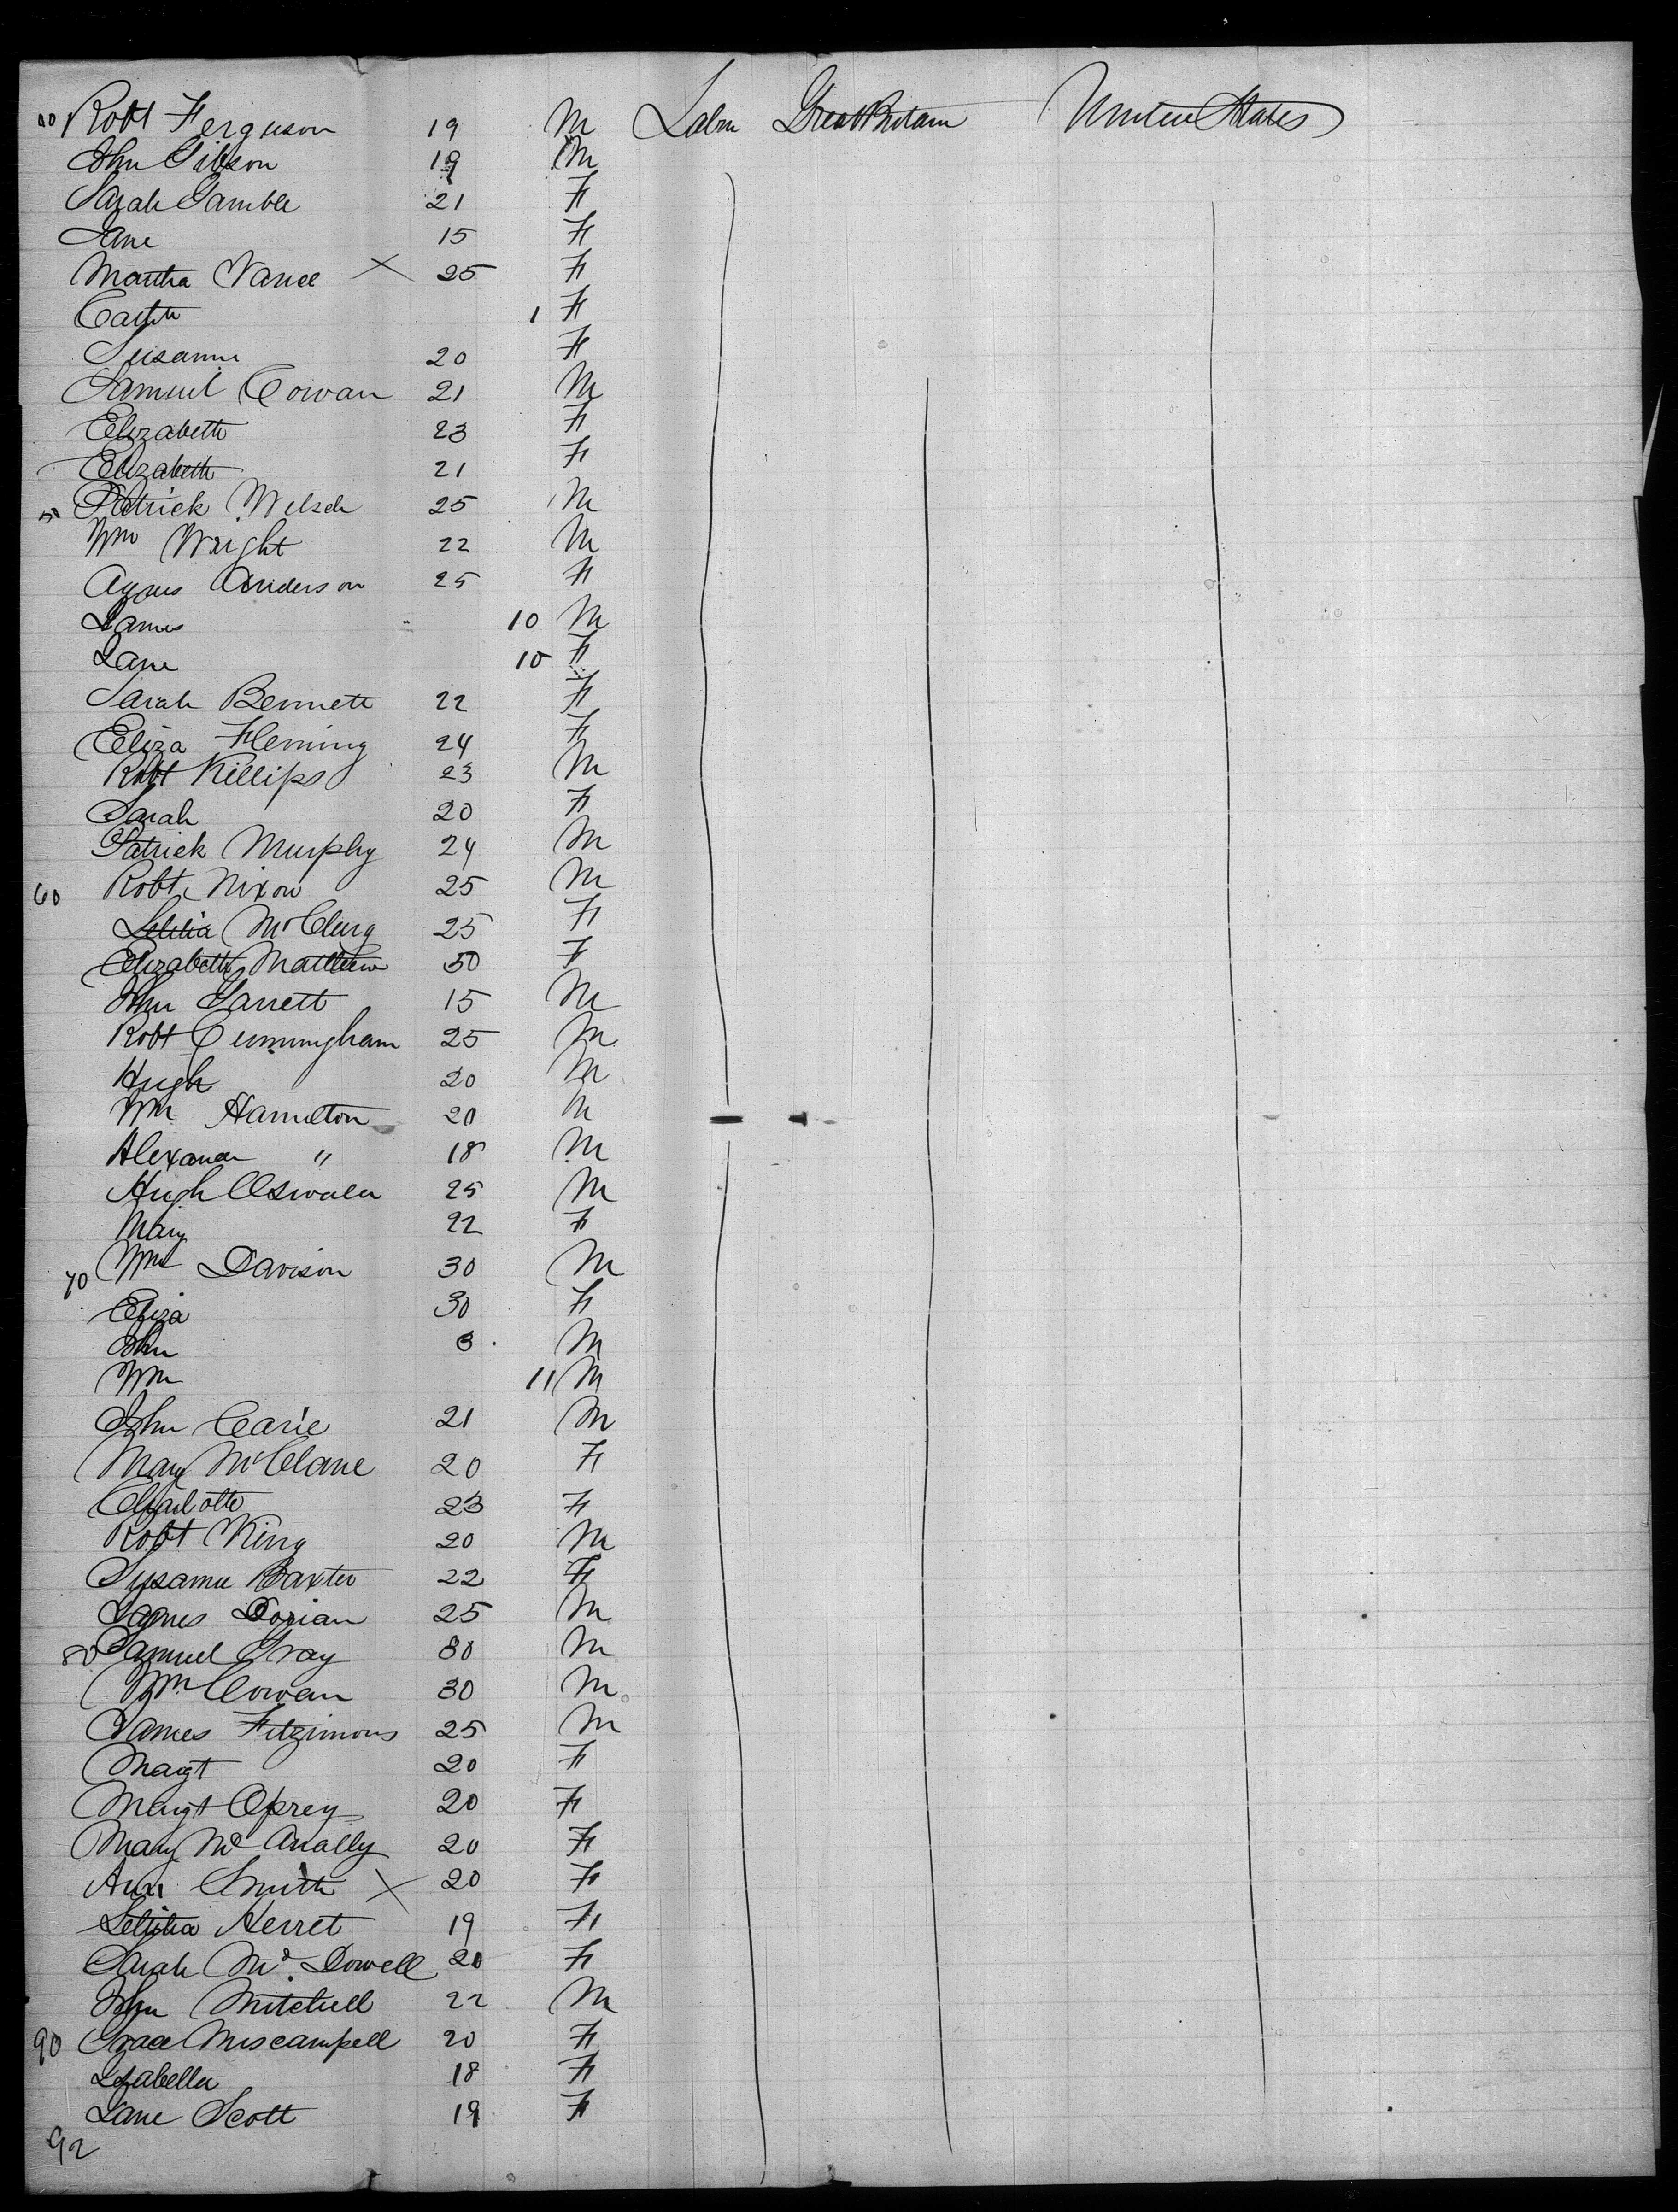 40 Robt Ferguson 19 M Labr Great Britain United States
John Gibson 19 M
Sarah Gamble 21 F
Jane 15 F
Martha Vance X 25 F
Cath 1 F
Susanna 20 F
Samuel Cowan 21 M
Elizabeth 23 F
Elizabeth 21 F
50 Patrick Welsch 25 M
Wm Wright 22 M
Agnes Anderson 25 F
James 10 M
Jane 10 F
Sarah Bennett 22 F
Eliza Fleming 24 F
Robt Killips 23 M
Sarah 20 F
Patrick Murphy 24 M
60 Robt Nixon 25 M
Letitia McClurg 25 F
Elizabeth Matthew 50 F
John Garrett 15 M
Robt Cunningham 25 M
Hugh 20 M
Wm Hamilton 20 M
Alexander " 18 M
Hugh Oswald 25 M
Mary 22 F
70 Wm Davison 30 M
Eliza 30 F
John 3 M
Wm 11 M
John Carie 21 M
Mary McClane 20 F
Charlotte 23 F
Robt King 20 M
Susanna Baxter 22 F
James Dorian 25 M
80 Samuel Gray 30 M
Wm Cowan 30 M
James Fitzimons 25 M
Magt 20 F
Magt Oprey 20 F
Mary McAnally 20 F
Ann Smith X 20 F
Letitia Herret 19 F
Sarah McDowell 20 F
John Mitchell 22 M
90 Grace Miscampell 20 F
Isabella 18 F
Jane Scott 19 F
92